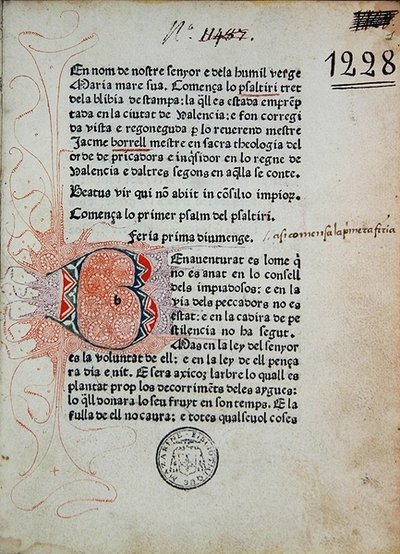 Nº 11487.
1228
En nom de nostre senyor e dela humil verge
Maria mare sua. Comença lo psaltiri tret
dela biblia de stampa: la q̃ll es estada emprẽp
tada en la ciutat de Valencia: e fon corregi
da vista e regoneguda ꝑ lo reuerend mestre
Jacme borrell mestre en sacra theologia del
orde de pricadors e inq̃sidor en lo regne de
Valencia e daltres segons en aq̃lla se conte.
Beatus vir qui nõ abiit in cõsilio impioꝝ.
Comença lo primer psalm del psaltiri.
Feria prima diumenge.
asi comensa la pimera firia
b
Enauenturat es lome q̃
no es anat en lo consell
dels impiadosos: e en la
via dels peccadors no es
estat: e en la cadira de pe
stilencia no ha segut.
Mas en la ley del senyor
es la voluntat de ell: e en la ley de ell pença
ra dia e nit. E sera axicoz larbre lo quall es
plantat prop los decorrimẽts deles aygues:
lo q̃ll donara lo seu fruyt en son temps. E la
fulla de ell no caura: e totes qualseuol coses
BIBLIOTHEQUE MAZARINE